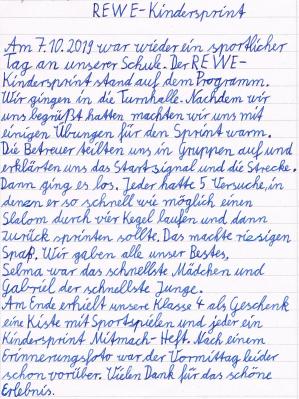 REWE-Kindersprint
Am 7.10.2019 war wieder ein sportlicher
Tag an unserer Schule. Der REWE-
Kindersprint stand auf dem Programm.
Wir gingen in die Turnhalle. Nachdem wir
uns begrüßt hatten machten wir uns mit
einigen Übungen für den Sprint warm.
Die Betreuer teilten uns in Gruppen auf und
erklärten uns das Startsignal und die Strecke.
Dann ging es los. Jeder hatte 5 Versuche, in
denen er so schnell wie möglich einen
Slalom durch vier Kegel laufen und dann
zurück sprinten sollte. Das machte riesigen
Spaß. Wir gaben alle unser Bestes,
Selma war das schnellste Mädchen und
Gabriel der schnellste Junge.
Am Ende erhielt unsere Klasse 4 als Geschenk
eine Kiste mit Sportspielen und jeder ein
Kindersprint Mitmach-Heft. Nach einem
Erinnerungsfoto war der Vormittag leider
schon vorüber. Vielen Dank für das schöne
Erlebnis.